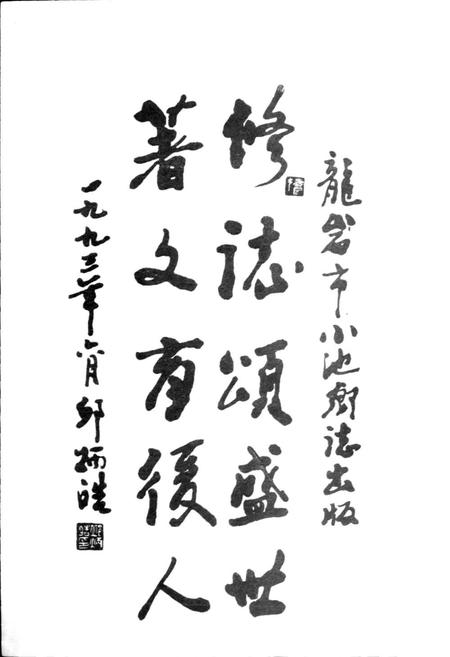 龍岩市小池鄉誌出版
修誌頌盛世
著文育後人
一九九三年六月邱炳皓